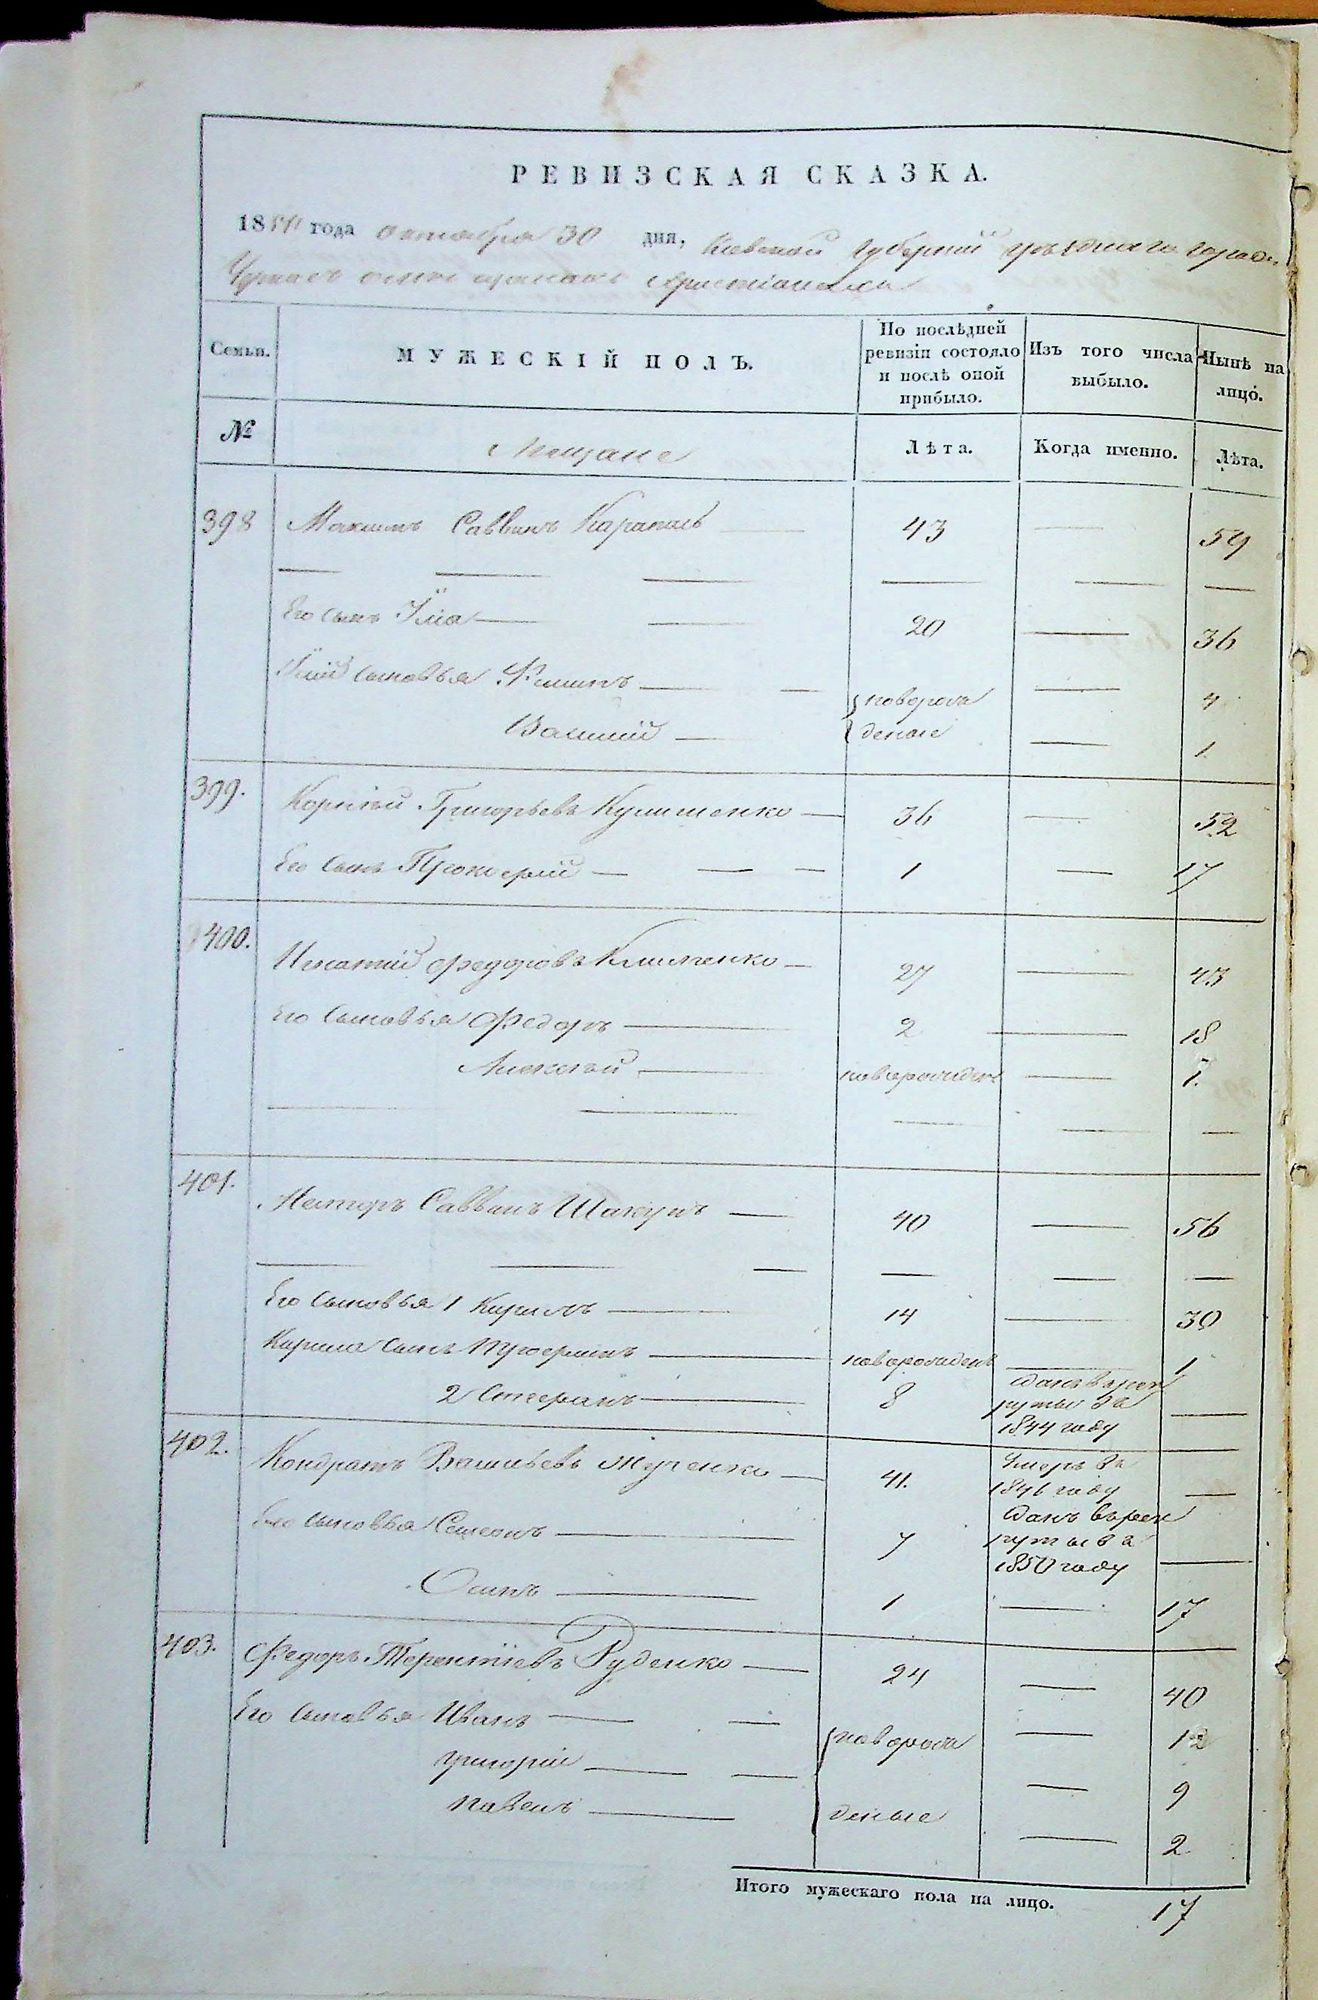 РЕВИЗСКАЯ СКАЗКА.
1850 года октября 30 дня, Киевской губернии уезднаго города
о мещанахъ христіанахъ
Семьи. МУЖЕСКІЙ ПОЛЪ. По послѣдней ревизіи состояло и послѣ оной прибыло. Изъ того числа выбыло. Нынѣ на лицо.
№ Мещане Лѣта. Когда именно. Лѣта.
398 Максимъ Саввинъ 43 — 59
Его сынъ Илія 20 — 36
Иліи сыновья Филипъ новорож — 4
Василій денные — 1
399. Корнѣй Григорьевъ 36 — 52
Его сынъ Прокофій 1 — 17
400. Игнатій Федоровъ Клименко 27 — 43
Его сыновья Федоръ 2 — 18
Алексѣй новорожден — 7.
401. Несторъ Саввинъ Шакунъ 40 — 56
Его сыновья 1 Кирилъ 14 — 30
Кирила сынъ новорожденъ — 1
2 Стефанъ 8 данъ в рек
руты въ —
1844 году
402. Кондратъ Васильевъ 41. Умеръ въ
1846 году —
Его сыновья Семенъ 7 данъ в рек
руты в
1850 году —
Осипъ 1 — 17
403. Федоръ Терентіевъ Руденко 24 — 40
Его сыновья Иванъ новорож — 12
Григорій — 9
Павелъ денные — 2
Итого мужескаго пола на лицо. 17